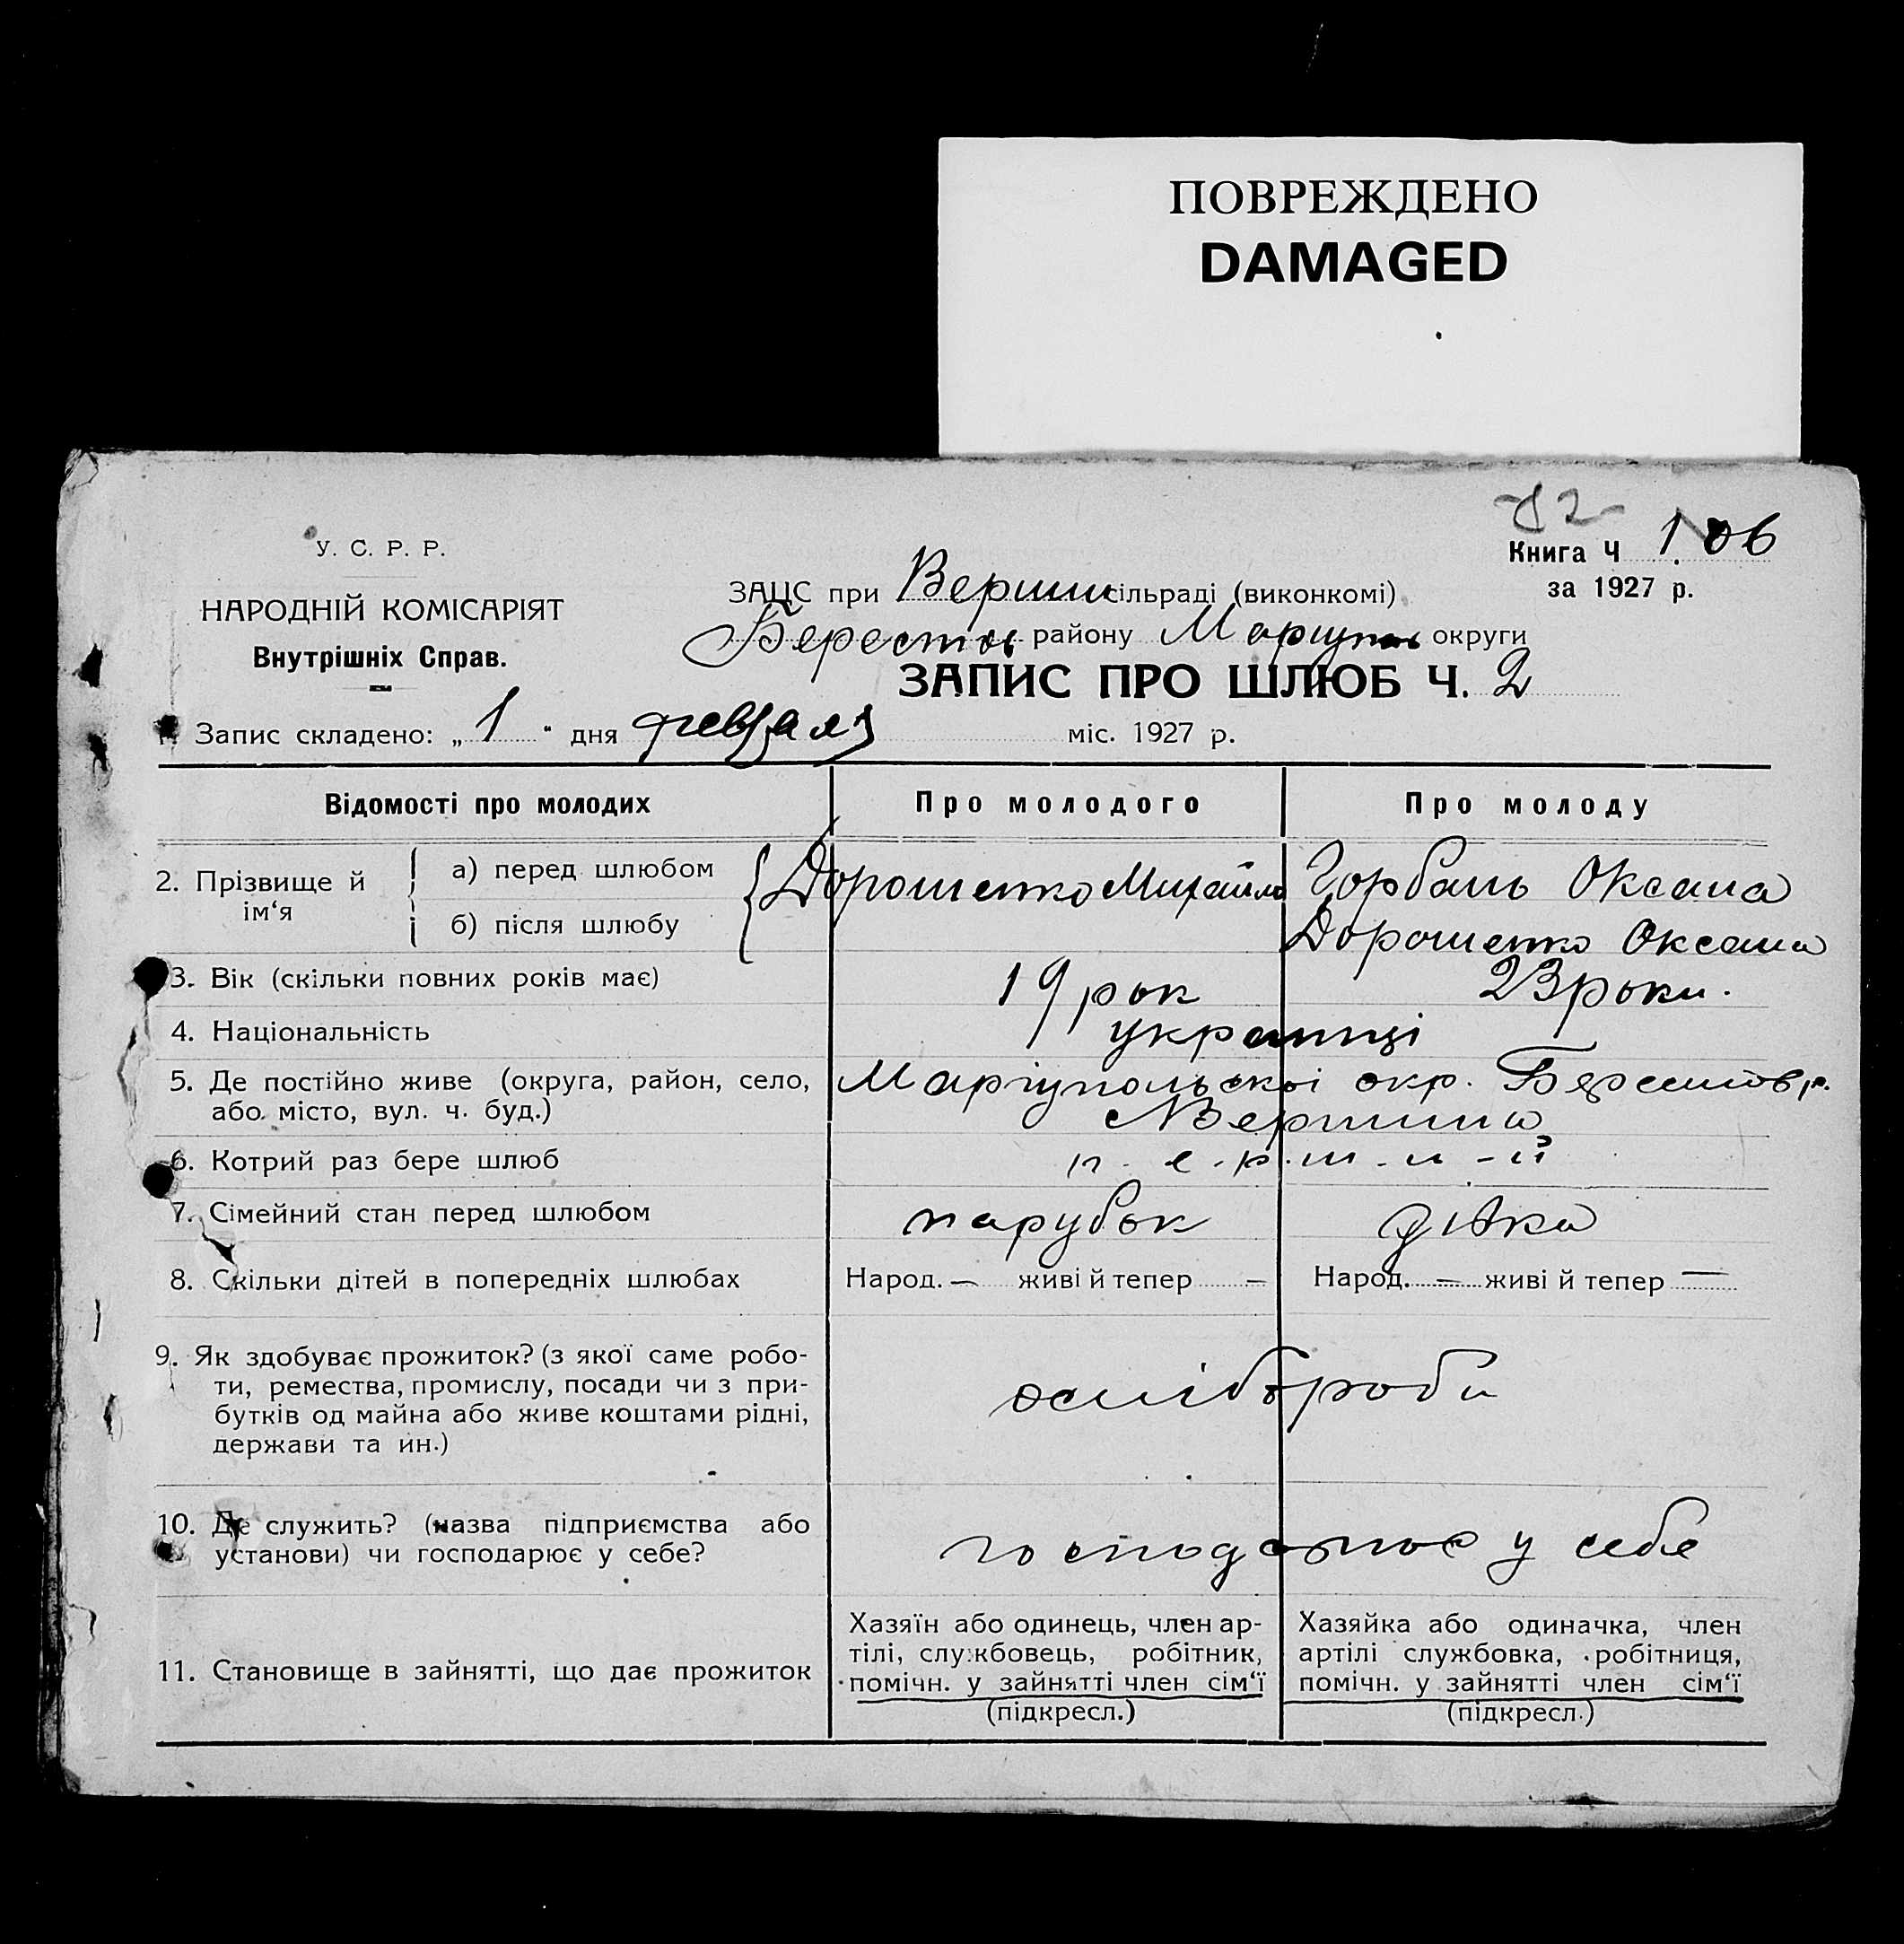 ПОВРЕЖДЕНО
DAMAGED
У. С. Р. Р.
НАРОДНІЙ КОМІСАРІЯТ
Внутрішніх Справ.
Книга Ч 1
за 1927 р.
ЗАЦС при Верши сільраді (виконкомі)
Берестов району Маріуполь округи
ЗАПИС ПРО ШЛЮБ Ч. 2
Запис складено: „ 1 " дня февраля міс. 1927 р.
Відомості про молодих
Про молодого
Про молоду
2. Прізвище й ім‘я
а) перед шлюбом
б) після шлюбу
Дорошенко Михайло
Горбань Оксана
Дорошенко Оксана
3. Вік (скільки повних років має)
19 рок
23 роки.
4. Національність
українці
5. Де постійно живе (округа, район, село,
або місто, вул. ч. буд.)
Маріупольської окр. Берестов р.
Вершина
6. Котрий раз бере шлюб
п - е - р - ш - и - й
7. Сімейний стан перед шлюбом
парубок
дівка
8. Скільки дітей в попередніх шлюбах
Народ. — живі й тепер —
Народ. — живі й тепер —
9. Як здобуває прожиток? (з якої саме робо-
ти, ремества, промислу, посади чи з при-
бутків од майна або живе коштами рідні,
держави та ин.)
хліброби
10. Де служить? (назва підприємства або
установи) чи господарює у себе?
у себе
11. Становище в зайнятті, що дає прожиток
Хазяїн або одинець, член ар-
тілі, службовець, робітник,
помічн. у зайнятті член сім‘ї
(підкресл.)
Хазяйка або одиначка, член
артілі службовка, робітниця,
помічн. у зайнятті член сім‘ї
(підкресл.)